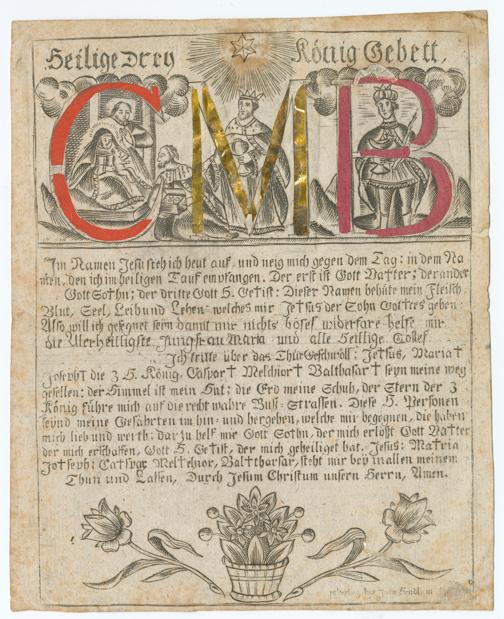 Heilige Drey König Gebett,
C M B
Im Namen Jesu steh ich heut auf, und neig mich gegen dem Tag: in dem Na
men, den ich im heiligen Tauf empfangen. Der erst ist Gott Vatter; der ander
Gott Sothn; der dritte Gott H. Geist: Dieser Namen behüte mein Fleisch,
Blut, Seel, Leib und Leben: welches mir Jetsus der Sohn Gottes geben:
Also will ich gesegnet sein damit mir nichts böses widerfare helfe mir
die Allerheiligste Jungfrau Maria und alle Heilige Gottes.
Ich tritte über das Thür Geschwöll: Jetsus, Maria†
Joseph† die 3 H. König. Caspar† Melchior† Balthasar† seyn meine weg
gesellen: der Himmel ist mein Hut; die Erd meine Schuh, der Stern der 3
König führe mich auf die recht wahre Buß-Strassen. Diese H. Personen
seynd meine Gefährten im hin= und hergehen, welche mir begegnen, die haben
mich lieb und werth: darzu helf mir Gott Sothn, der mich erlößt Gott Vatter
der mich erschaffen, Gott H. Geist, der mich geheiliget hat. Jesus: Matria
Jotseph: Catspar Meltchior, Balttharsar, steht mir bey in allen meinem
Thun und Lassen, Durch Jesum Christum unsern Herrn, Amen.